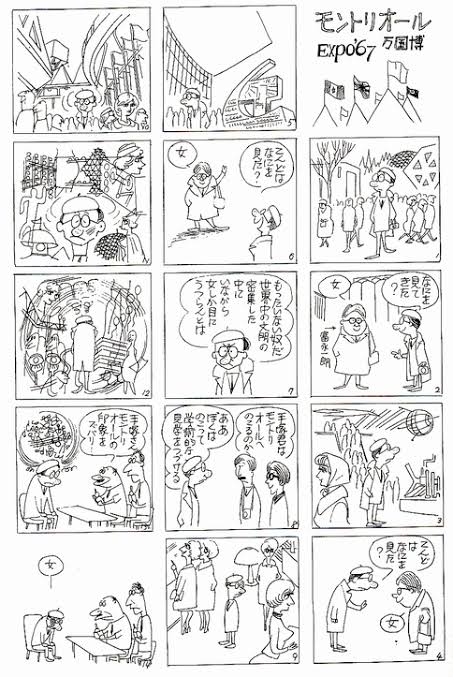 モントリオール
EXPO'67 万国博
1
なにを
見て
きた
?
女
富永一朗
2
3
こんど
は
なにを
見た
?
女
4
5
こんどは
なにを
見た?
女
6
もったいない奴だ
世界中の文明の
密集した
中に
いながら
女しか目に
うつらんとは
7
手塚君は
モントリ
オールへ
のこるのか
ああ
ぼくは
のこって
学術的な
見学をつづける
8
9
10
12
手塚さん
モントリ
オールの
印象を
ズバリ
女